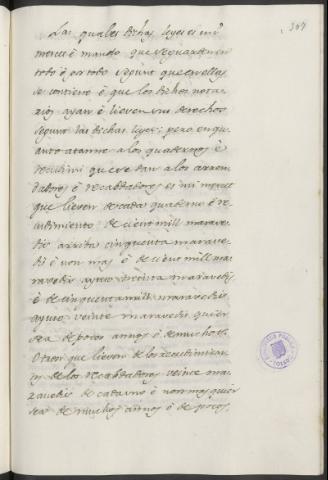 367
Las quales dichas leyes es mi
merced é mando que se guarden en
todo é por todo segunt que en ellas
se contiene é que los dichos nota-
rios ayan é lieven sus derechos
segunt las dichas leyes: pero en qu-
anto atanne a los quadernos é
recudimi que se dan a los arren-
dadores é recabdadores es mi merced
que lieven de cada quaderno é re-
cudimiento de cient mill marave-
dis arriba cinquenta marave-
dis é non mas é de cient mill ma-
ravedis ayuso treinta maravedis
é de cinquenta mill maravedis
ayuso veinte maravedis quier
sea de pocos annos é de muchos.
Otrosi que lieven de los recudimien-
tos de los recabdadores veinte ma-
ravedis de cada uno é non mas quier
sea de muchos annos é de pocos,